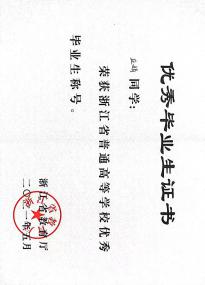 优秀毕业生证书
同学：
荣获浙江省普通高等学校优秀
毕业生称号。
浙江省教育厅
二〇〇一年五月